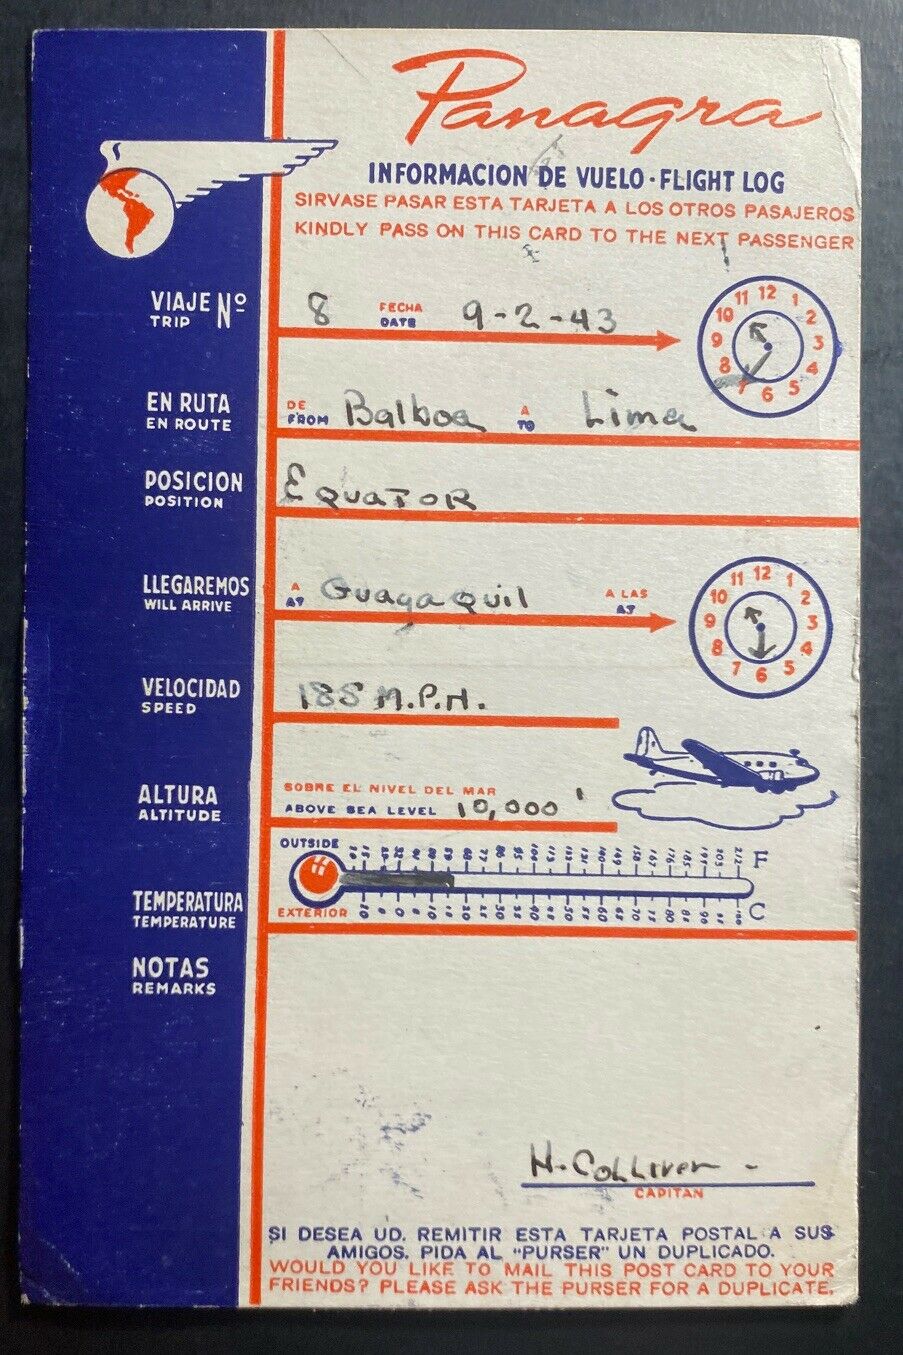 Panagra
INFORMACION DE VUELO - FLIGHT LOG
SIRVASE PASAR ESTA TARJETA A LOS OTROS PASAJEROS
KINDLY PASS ON THIS CARD TO THE NEXT PASSENGER
VIAJE Nº 8 FECHA 9-2-43
TRIP DATE
12 1 2 3 4 5 6 7 8 9 10 11
EN RUTA DE Balboa A Lima
EN ROUTE FROM TO
POSICION EQUATOR
POSITION
LLEGAREMOS A Guayaquil A LAS
WILL ARRIVE AT AT
12 1 2 3 4 5 6 7 8 9 10 11
VELOCIDAD 185 M.P.H.
SPEED
ALTURA SOBRE EL NIVEL DEL MAR
ALTITUDE ABOVE SEA LEVEL 10,000'
OUTSIDE
F
TEMPERATURA EXTERIOR
TEMPERATURE
C
NOTAS
REMARKS
H. Colliver -
CAPITAN
SI DESEA UD. REMITIR ESTA TARJETA POSTAL A SUS
AMIGOS. PIDA AL "PURSER" UN DUPLICADO.
WOULD YOU LIKE TO MAIL THIS POST CARD TO YOUR
FRIENDS? PLEASE ASK THE PURSER FOR A DUPLICATE.